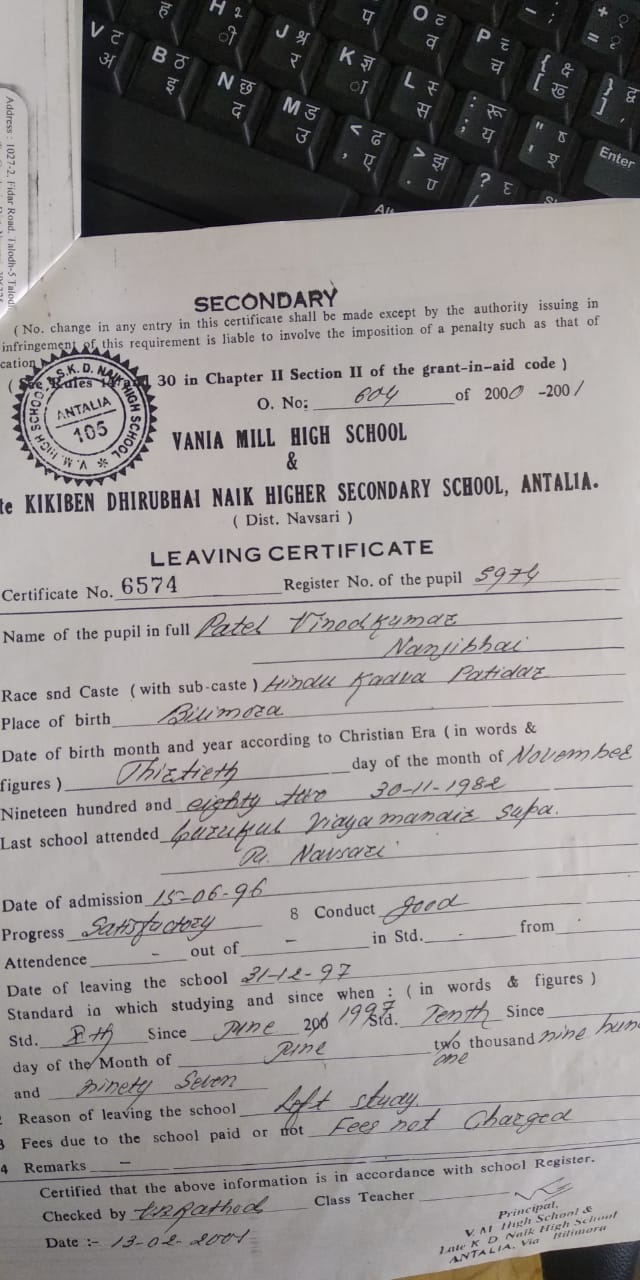 H ॄ ी
प
O ट व
P च
V ट अ
B ठ इ
N छ द
J श्र र
K ज्ञ ा
M ड उ
L स्
Enter
Address : 1027-2, Fidar Road, Talodh-5
SECONDARY
( No. change in any entry in this certificate shall be made except by the authority issuing in
infringement of this requirement is liable to involve the imposition of a penalty such as that of
cation
30 in Chapter II Section II of the grant-in-aid code )
S. K. D. NAIK HIGH SCHOOL V. M. HIGH SCHOOL
ANTALIA
105
O. No: 604 of 2000 -2001
VANIA MILL HIGH SCHOOL
&
te KIKIBEN DHIRUBHAI NAIK HIGHER SECONDARY SCHOOL, ANTALIA.
( Dist. Navsari )
LEAVING CERTIFICATE
Certificate No. 6574 Register No. of the pupil 5974
Name of the pupil in full Patel Vinodkumar
Nanjibhai
Race snd Caste ( with sub-caste ) Hindu Kadva Patidar
Place of birth Bilimora
Date of birth month and year according to Christian Era ( in words &
figures ) Thirtieth day of the month of November
Nineteen hundred and eighty two 30-11-1982
Last school attended Gurukul Vidyamandir Supa.
Navsari
Date of admission 15-06-96
Progress Satisfactory 8 Conduct good
Attendence - out of - in Std. - from
Date of leaving the school 31-12-97
Standard in which studying and since when : ( in words & figures )
Std. Xth Since June 200 1997 Std. Tenth Since
day of the Month of June two thousand nine hun
one
and ninety Seven
Reason of leaving the school Left study.
3 Fees due to the school paid or not Fees not Charged
4 Remarks -
Certified that the above information is in accordance with school Register.
Checked by Rathod Class Teacher
Date :- 13-02-2001
Principal,
V. M High School &
Late K D Naik High School
ANTALIA. Via Bilimora